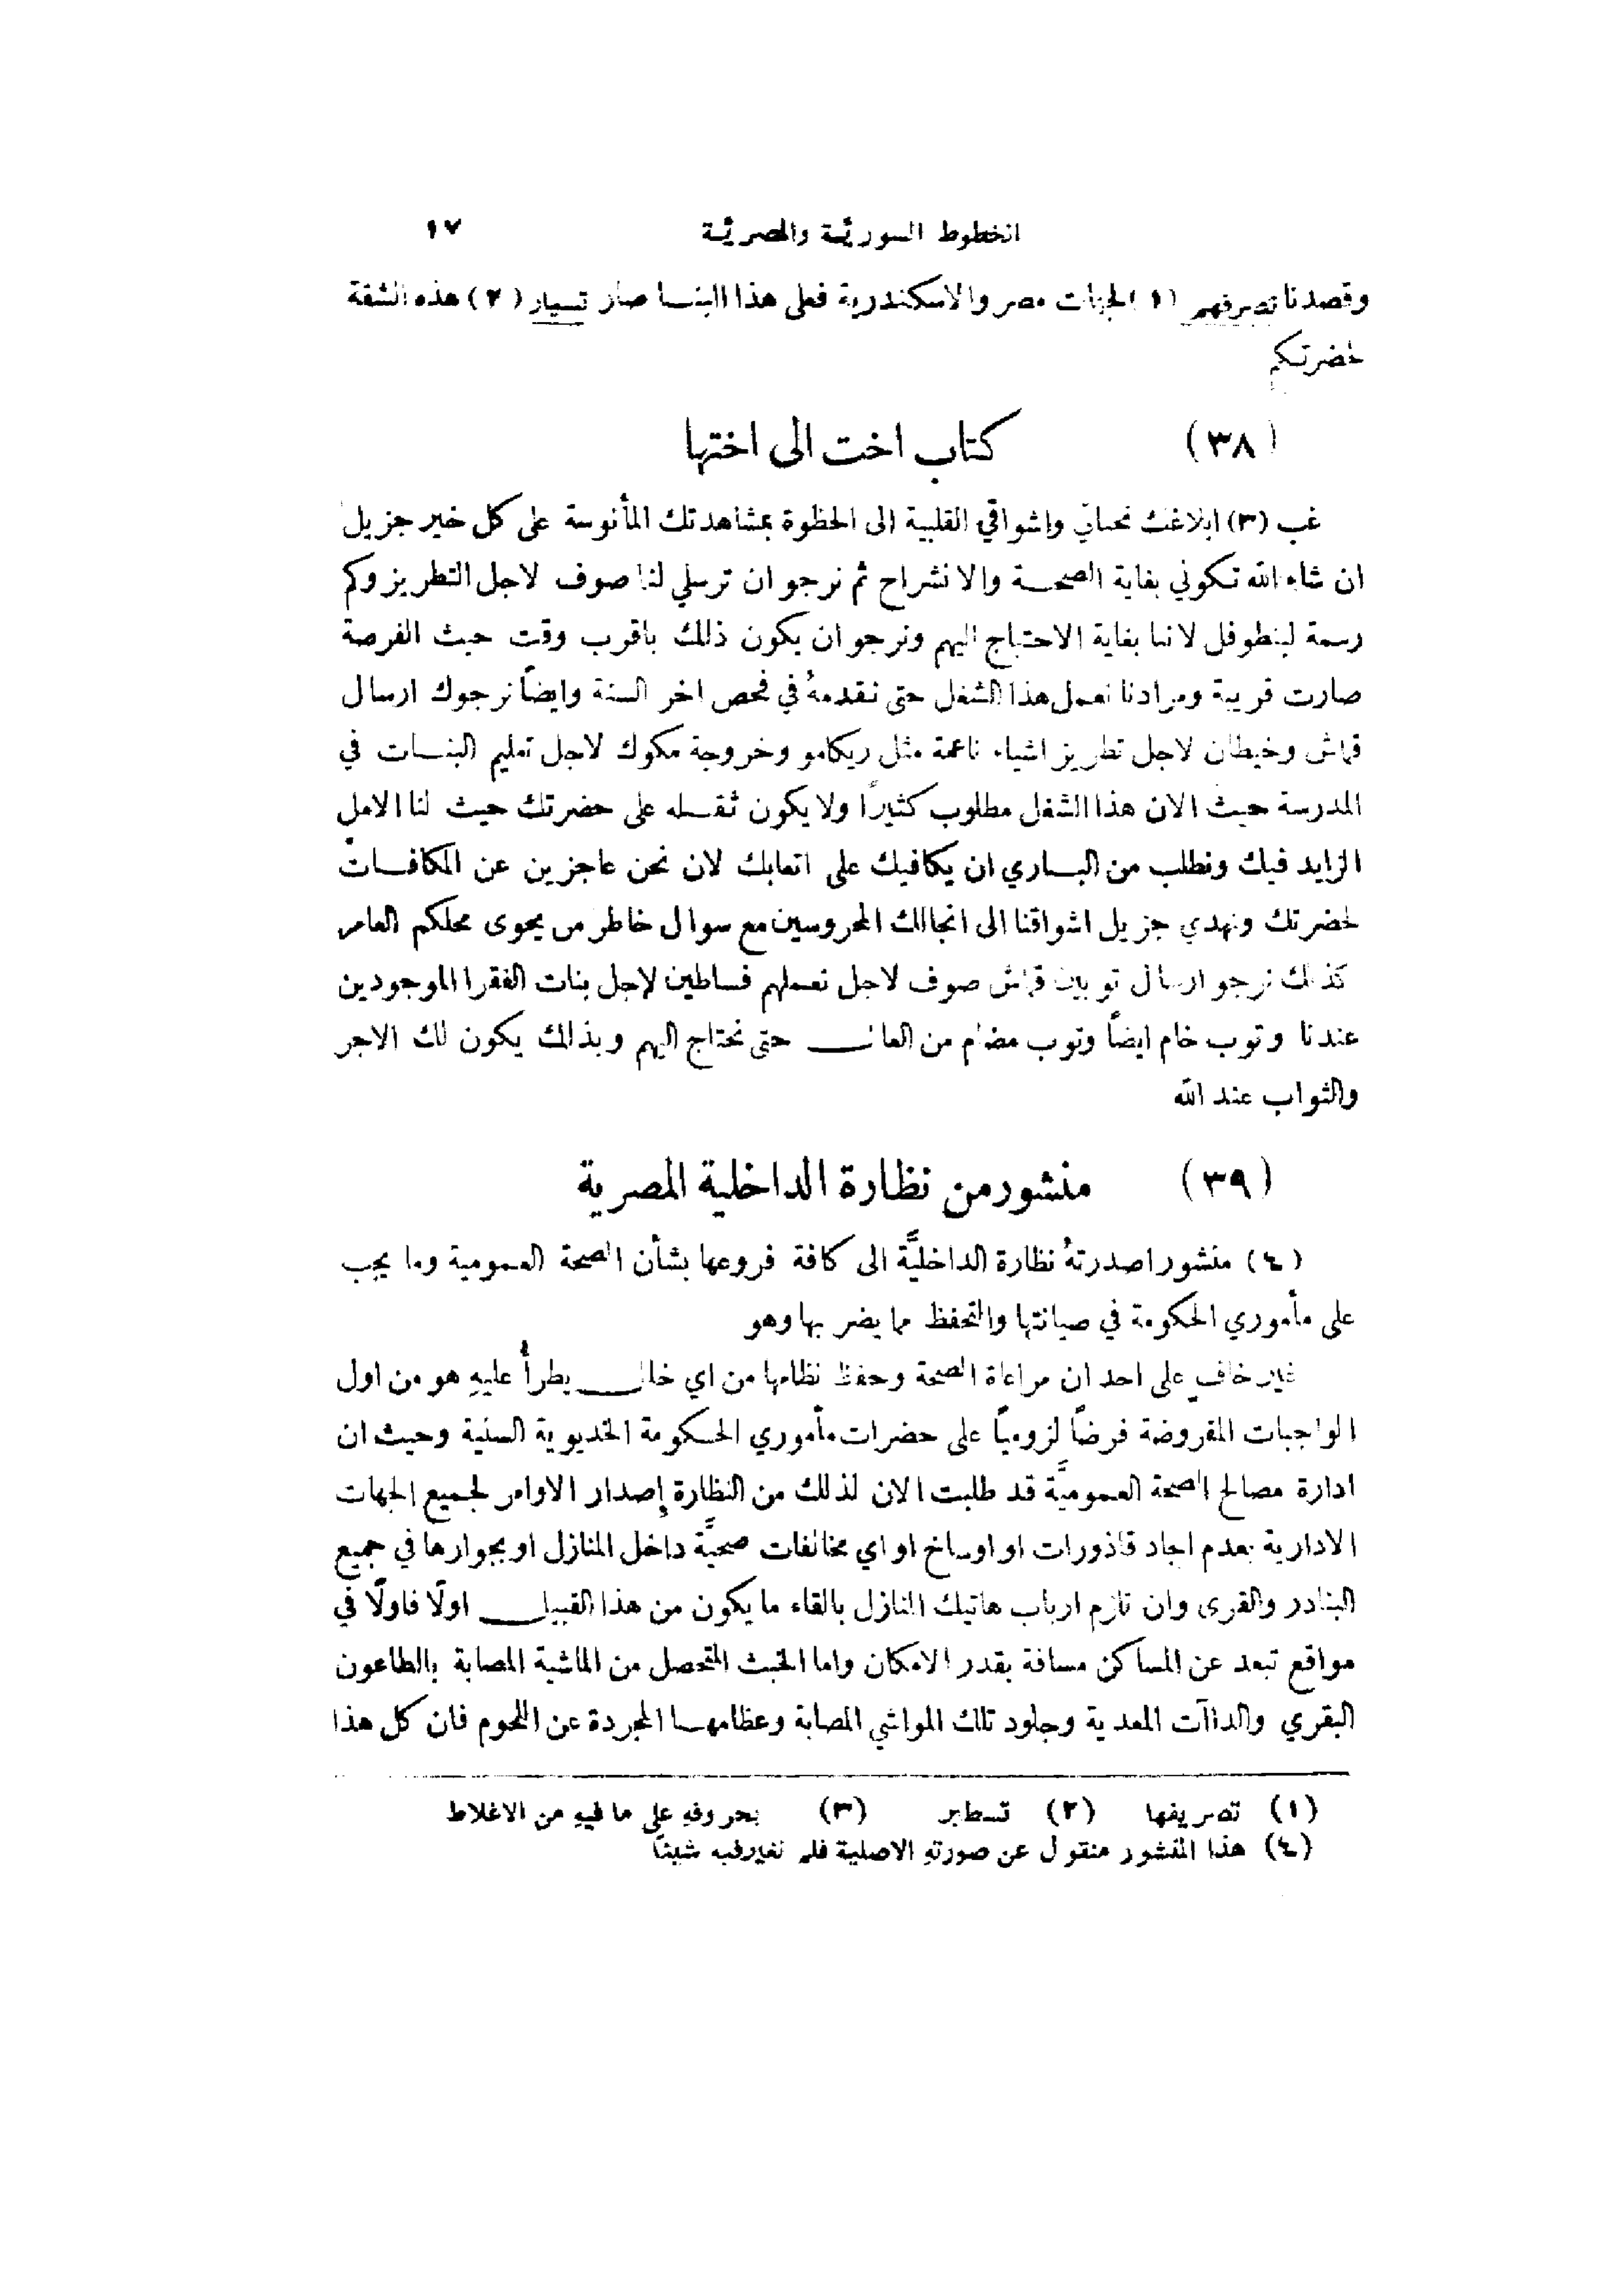 الخطوط السوريَّة والمصريَّة ١٧
وقصدنا تصرفهم (١) لجهات مصر والاسكندرية فعلى هذا البنا صار تسيار (٢) هذه الشقة
لحضرتكم
(٣٨) كتاب اخت الى اختها
غب (٣) ابلاغك تحياتي واشواقي القلبية الى الحظوة بمشاهدتك المأنوسة على كل خير جزيل
ان شاء الله تكوني بغاية الصحة والانشراح ثم نرجو ان ترسلي لنا صوف لاجل التطريز وكم
رسمة لبنطوفل لاننا بغاية الاحتياج اليهم ونرجو ان يكون ذلك باقرب وقت حيث الفرصة
صارت قريبة ومرادنا نعمل هذا الشغل حتى نقدمهُ في فحص اخر السنة وايضاً نرجوك ارسال
قماش وخيطان لاجل تطريز اشياء ناعمة مثل ريكامو وخروجة مكوك لاجل تعليم البنات في
المدرسة حيث الان هذا الشغل مطلوب كثيرًا ولا يكون ثقله على حضرتك حيث لنا الامل
الزايد فيك ونطلب من الباري ان يكافيك على اتعابك لان نحن عاجزين عن المكافات
لحضرتك ونهدي جزيل اشواقنا الى انجالك المحروسين مع سوال خاطر من يحوى محلكم العامر
كذلك نرجو ارسال توبين قماش صوف لاجل نعملهم فساطين لاجل بنات الفقرا الموجودين
عندنا وتوب خام ايضاً وتوب مضام من العال حتى نحتاج اليهم وبذالك يكون لك الاجر
والثواب عند الله
(٣٩) منشور من نظارة الداخلية المصرية
(٤) منشور اصدرتهُ نظارة الداخليَّة الى كافة فروعها بشأن الصحة العمومية وما يجب
على مأموري الحكومة في صيانتها والتحفظ مما يضر بها وهو
غير خافٍ على احد ان مراعاة الصحة وحفظ نظامها من اي خال يطرأ عليهِ هو من اول
الواجبات المفروضة فرضاً لزومياً على حضرات مأموري الحكومة الخديوية السنية وحيث ان
ادارة مصالح الصحة العموميَّة قد طلبت الان لذلك من النظارة إصدار الاوامر لجميع الجهات
الادارية بعدم اجاد قاذورات او اوساخ او اي مخالفات صحيَّة داخل المنازل او بجوارها في جميع
البنادر والقرى وان تلزم ارباب هاتيك المنازل بالقاء ما يكون من هذا القبيل اولًا فاولًا في
مواقع تبعد عن المساكن مسافة بقدر الامكان واما الخبث المتحصل من الماشية المصابة بالطاعون
البقري والداآت المعدية وجلود تلك المواشي المصابة وعظامها المجردة عن اللحوم فان كل هذا
(١) تصريفها (٢) تسطير (٣) بحروفهِ على ما فيهِ من الاغلاط
(٤) هذا المنشور منقول عن صورتهِ الاصلية فلم نغير فيه شيئاً